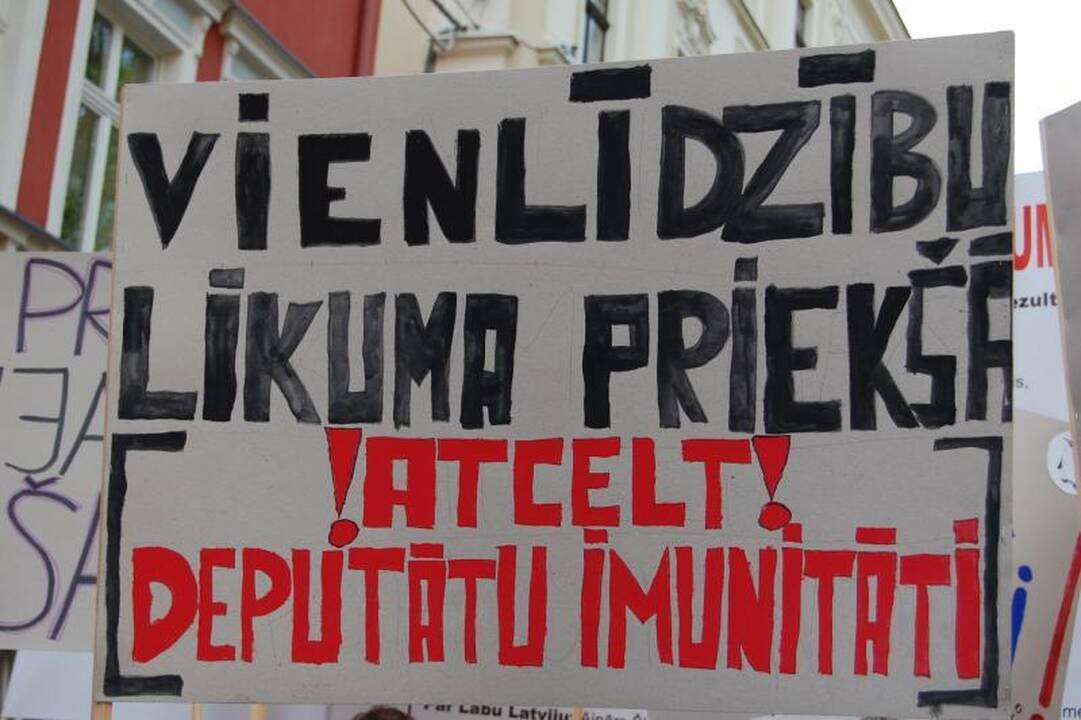 VIENLĪDZĪBU
LIKUMA PRIEKŠĀ
!ATCELT!
DEPUTĀTU IMUNITĀTI
PR
JA
ŠA
UM
ezult
Par Labu Latviju